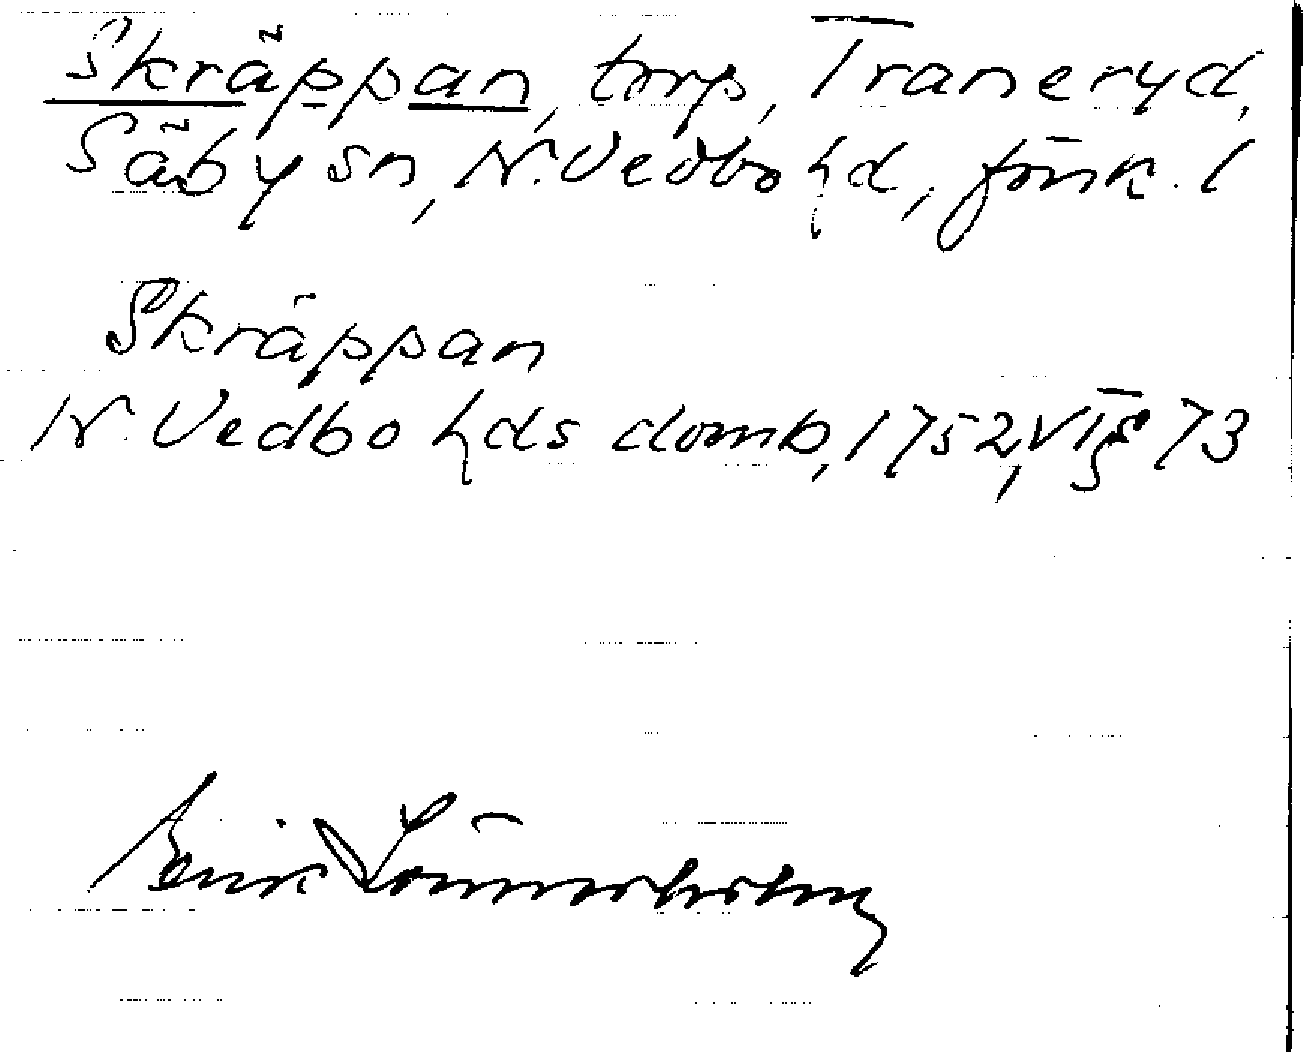 Skräppan, torp, Traneryd,
Säby sn, N. Vedbo hd, Jönk. l
Skräppan
N. Vedbo hds domb, 1752, VI, § 73
Erik Lönnerholm